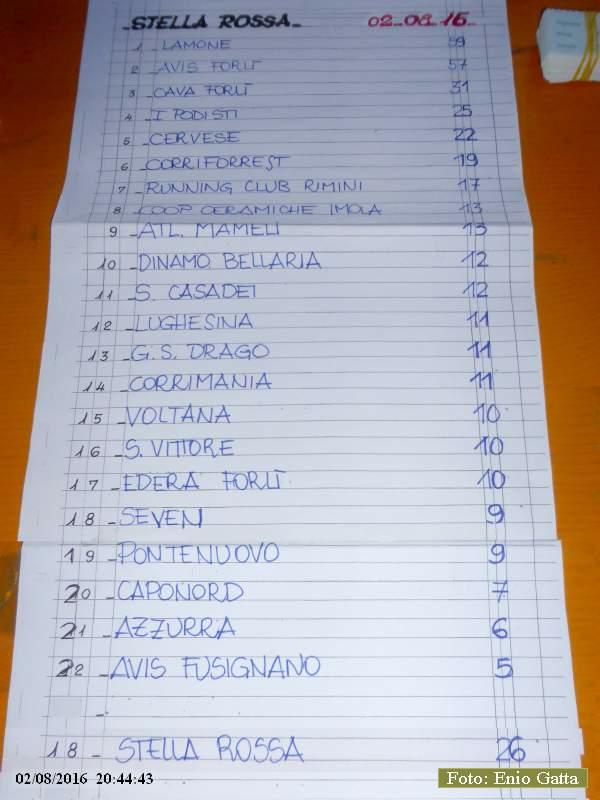 -STELLA ROSSA- 02-08-16-
1 -LAMONE 59
2 -AVIS FORLÌ 57
3 -CAVA FORLÌ 31
4 -I PODISTI 25
5 -CERVESE 22
6 -CORRIFORREST 19
7 -RUNNING CLUB RIMINI 17
8 -COOP CERAMICHE IMOLA 13
9 -ATL. MAMELI 13
10 -DINAMO BELLARIA 12
11 -S. CASADEI 12
12 -LUGHESINA 11
13 -G.S. DRAGO 11
14 -CORRIMANIA 11
15 -VOLTANA 10
16 -S. VITTORE 10
17 -EDERA FORLÌ 10
18 -SEVEN 9
19 -PONTENUOVO 9
20 -CAPONORD 7
21 -AZZURRA 6
22 -AVIS FUSIGNANO 5
-
18 - STELLA ROSSA 26
02/08/2016 20:44:43
Foto: Enio Gatta